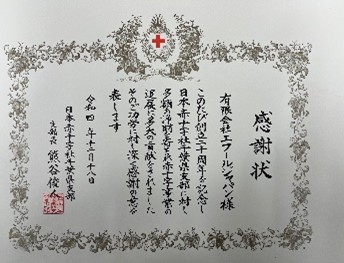 感謝状
有限会社エフルジャパン様
このたび創立二十周年を記念し
日本赤十字社千葉県支部に対し
多額の活動資金を寄せられ赤十字事業の
進展に多大の貢献をされました
そのご功労に対し深く感謝の意を
表します
令和四年十二月十八日
日本赤十字社千葉県支部
支部長 熊谷俊人